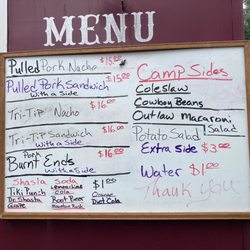 MENU
Pulled Pork Nacho $15.00
Pulled Pork Sandwich $15.00
with a side
Tri-Tip Nacho $16.00
Tri-Tip Sandwich $16.00
with a side
Pork
Burnt Ends $16.00
with a side
Shasta Soda $1.00
Tiki Punch
Dr. Shasta Root Beer Diet Cola
Grape
Camp Sides
Coleslaw
Cowboy Beans
Outlaw Macaroni
Salad
Potato Salad
Extra side $3.00
Water $1.00
Thank you